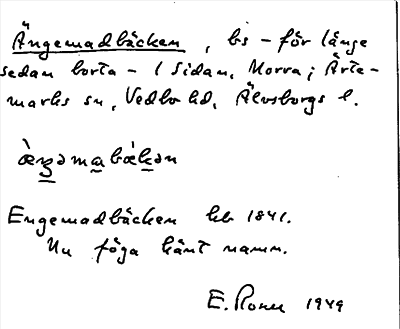 Ängemadbäcken, bs - för länge
sedan borta - i Sidan, Norra; Ärte-
marks sn, Vedbo hd, Älvsborgs l.
Engemadbäcken hb 1841.
Nu föga känt namn.
E. 1949